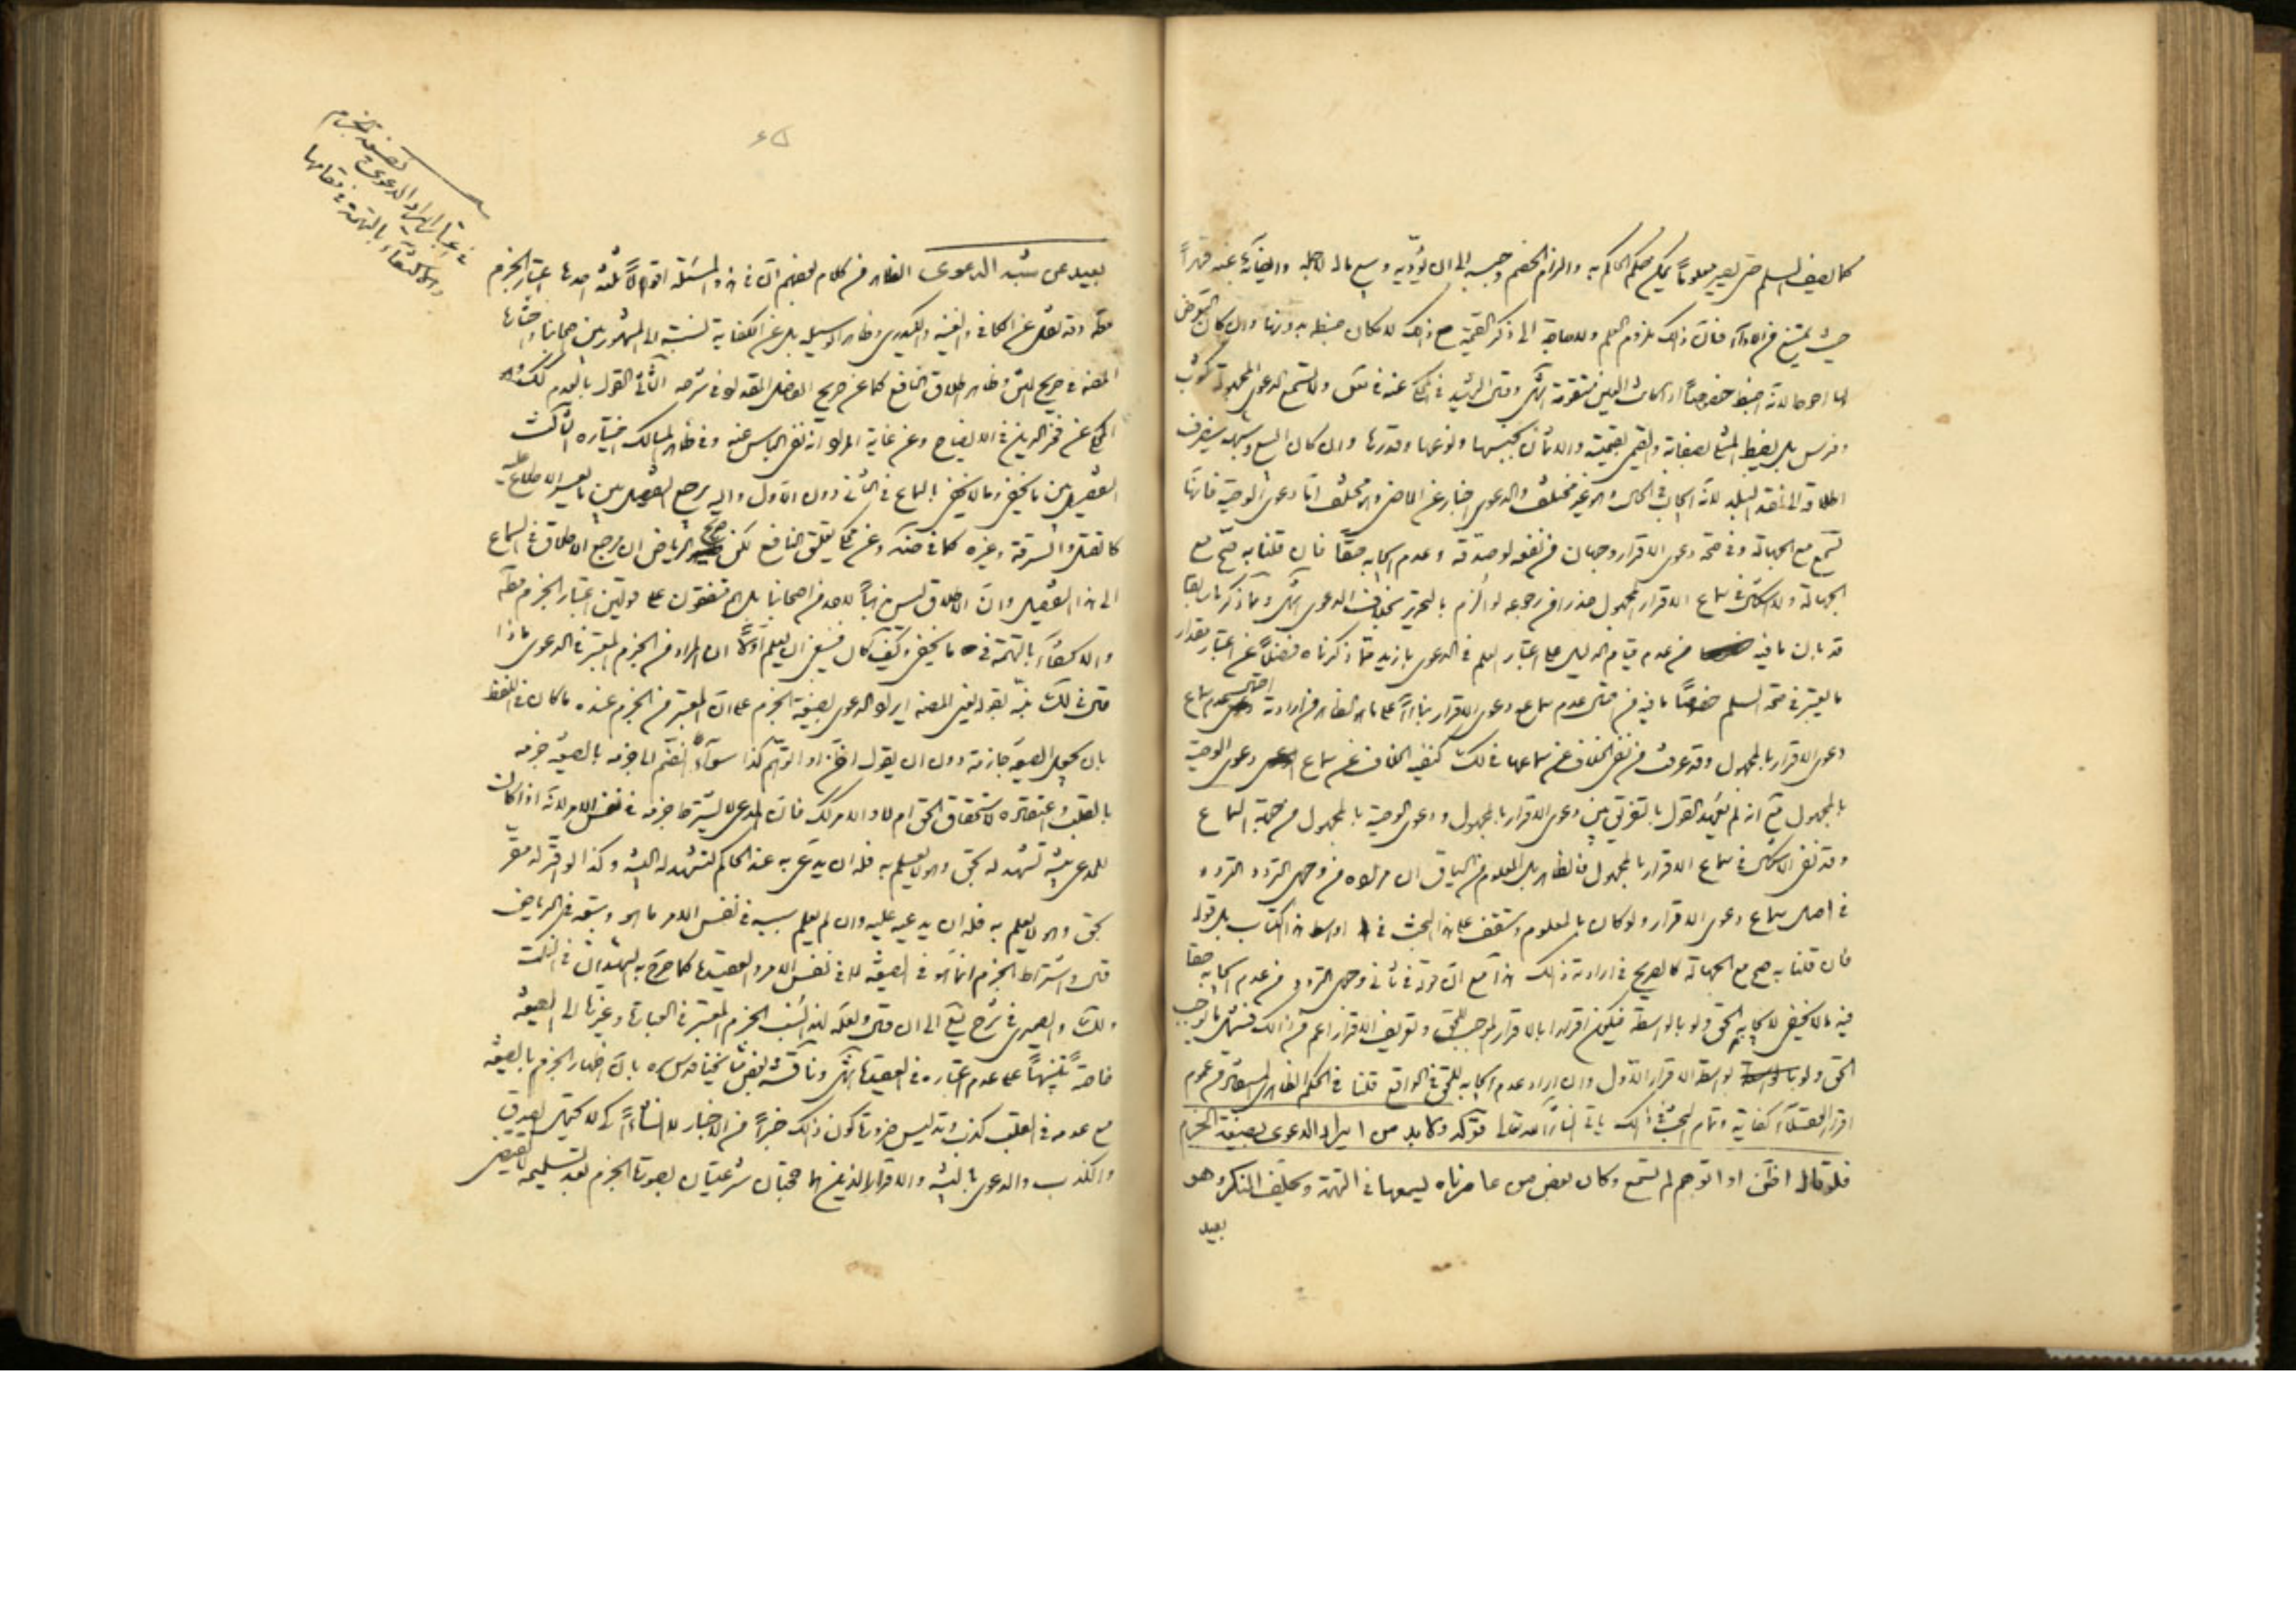 كما يصف السلم حتى يصير معلوماً يمكن حكم الحاكم به والزام الخصم وحبسه الى ان يؤديه وبيع ماله لاجله وايفائه عنه قهراً
حيث يمتنع من الاداء فان ذلك يلزم العلم ولا حاجة الى ذكر القيمة مع ذلك لامكان ضبطه بدونها وان كان التعرض
لها احوط لانه اضبط خصوصاً
وفرس بل يضبط المثلي بصفاته والقيمي بقيمته والاثمان بجنسها ونوعها وقدرها وان كان البيع وشبهه ينصرف
اطلاقه الى نقد البلد لانه ايجاب في الحال وهو غير مختلف والدعوى اخبار عن الماضي وهو مختلف اما دعوى الوصية فانها
تسمع مع الجهالة وفي صحة دعوى الاقرار وجهان من نفعه لو صدقه وعدم ايجابه حقاً فان قلنا به صح مع
الجهالة والاشكال في سماع الاقرار المجهول حذرا من رجوعه لو الزم بالتحرير بخلاف الدعوى انتهى ومما ذكرنا سابقا
قد بان ما فيه من عدم قيام الدليل على اعتبار العلم في الدعوى بازيد مما ذكرناه فضلاً عن اعتبار مقدار
ما يعتبر في صحة السلم خصوصاً ما فيه من عدم سماع دعوى الاقرار بناءاً على ما هو الظاهر من ارادته عدم سماع
دعوى الاقرار بالمجهول وقد عرفت من نفي الخلاف عن سماعها في لك كنفيه الخلاف عن سماع دعوى الوصية
بالمجهول مع انه لم نجد القول بالتفرق بين دعوى الاقرار بالمجهول ودعوى الوصية بالمجهول من جهة السماع
وقد نفى الاشكال في سماع الاقرار بالمجهول فالظاهر بل المعلوم من السياق ان مراده من وجهي التردد التردد
في اصل سماع دعوى الاقرار ولو كان بالمعلوم وستقف على هذا البحث في اواسط هذا الكتاب بل قوله
فان قلنا به صح مع الجهالة كالصريح في ارادته ذلك هذا مع ان قوله في ثاني وجهي التردد من عدم ايجابه حقا
فيه ما لا يخفى لايجابه الحق ولو بالواسطة فيكون اقرارا بالاقرار الموجب للحق وتعريف الاقرار اعم من ذلك
الحق ولو بواسطة الاقرار الاول وان اراد عدم ايجابه للحق في الواقع قلنا في الحكم الظاهر المستفاد من عموم
اقرار العقلاء كفاية وتمام البحث في ذلك ياتي انشاء الله تعالى قوله ولا بد من ايراد الدعوى بصيغة الجزم
فلو قال اظن او اتوهم لم تسمع وكان بعض من عاصرناه يسمعها في التهمة ويحلف المنكر وهو
بعيد
٦٥
في اعتبار ايراد الدعوى بصيغة الجزم
والاكتفاء بالتهمة في مقامها
بعيد عن شبه الدعوى الظاهر من كلام بعضهم ان في هذه المسئلة اقوالاً ثلثة احدها اعتبار الجزم
مطلقا وقد نقل عن الكافي والغنية والكيدري وظاهر الوسيلة بل عن الكفاية نسبته الى المشهور بين اصحابنا واختارها
المصنف في صريح المتن وظاهر اطلاق النافع كما عن صريح الفاضل المقداد في شرحه الثاني القول بالعدم كذلك وهو
المحكي عن فخر الدين في الايضاح وعن غاية المراد انه نفى الباس عنه وفي ظاهر المسالك اختياره الثالث
التفصيل بين ما يخفى وما لا يخفى بالسماع في الثاني دون الاول واليه يرجع التفصيل بين ما يعسر الاطلاع عليه
كالقتل والسرقة وغيره كما في ضد وعن لكن صرح الرياض ان مرجع الاطلاق في السماع
الى هذا التفصيل وان الاطلاق ليس مذهباً لاحد من اصحابنا بل هم متفقون على قولين اعتبار الجزم مطلقا
والاكتفاء بالتهمة في ما يخفى وكيف كان فينبغي ان يعلم اولاً ان المراد من الجزم المعتبر في الدعوى ماذا
قال في لك نبه بقوله يعني المصنف ايراد الدعوى بصيغة الجزم على ان المعتبر من الجزم عنده ما كان في اللفظ
بان يجعل الصيغة جازمة دون ان يقول اظن او اتوهم كذا سواء انضم الى جزمه بالصيغة جزمه
بالقلب واعتقاده لاستحقاق الحق ام لا والامر كذلك فان المدعي لا يشترط جزمه في نفس الامر لانه اذا كان
للمدعي بينة تشهد له بحق وهو لا يعلم به فله ان يدعي به عند الحاكم لتشهد له البينة وكذا لو اقر له مقر
بحق وهو لا يعلم به فله ان يدعيه عليه وان لم يعلم سببه في نفس الامر ما هو وتبعه في الرياض
قال واشتراط الجزم انما هو في الصيغة لا في نفس الامر والعقيدة كما صرح به الشهيدان في النكت
ولك والصيمري في شرح يع الى ان قال ولعله لذا نسب الجزم المعتبر في العبارة وغيرها الى الصيغة
خاصة تنبيهاً على عدم اعتباره في العقيدة انتهى وناقشه بعض مشايخنا قدس سره بان اظهار الجزم بالصيغة
مع عدمه في القلب كذب وتدليس ضرورة كون ذلك خبراً من الاخبار لا انشاءاً كي لا يحتمل الصدق
والكذب والدعوى بالبينة والاقرار الذين هما حجتان شرعيتان بصورة الجزم بعد تسليمه لا يقتضي